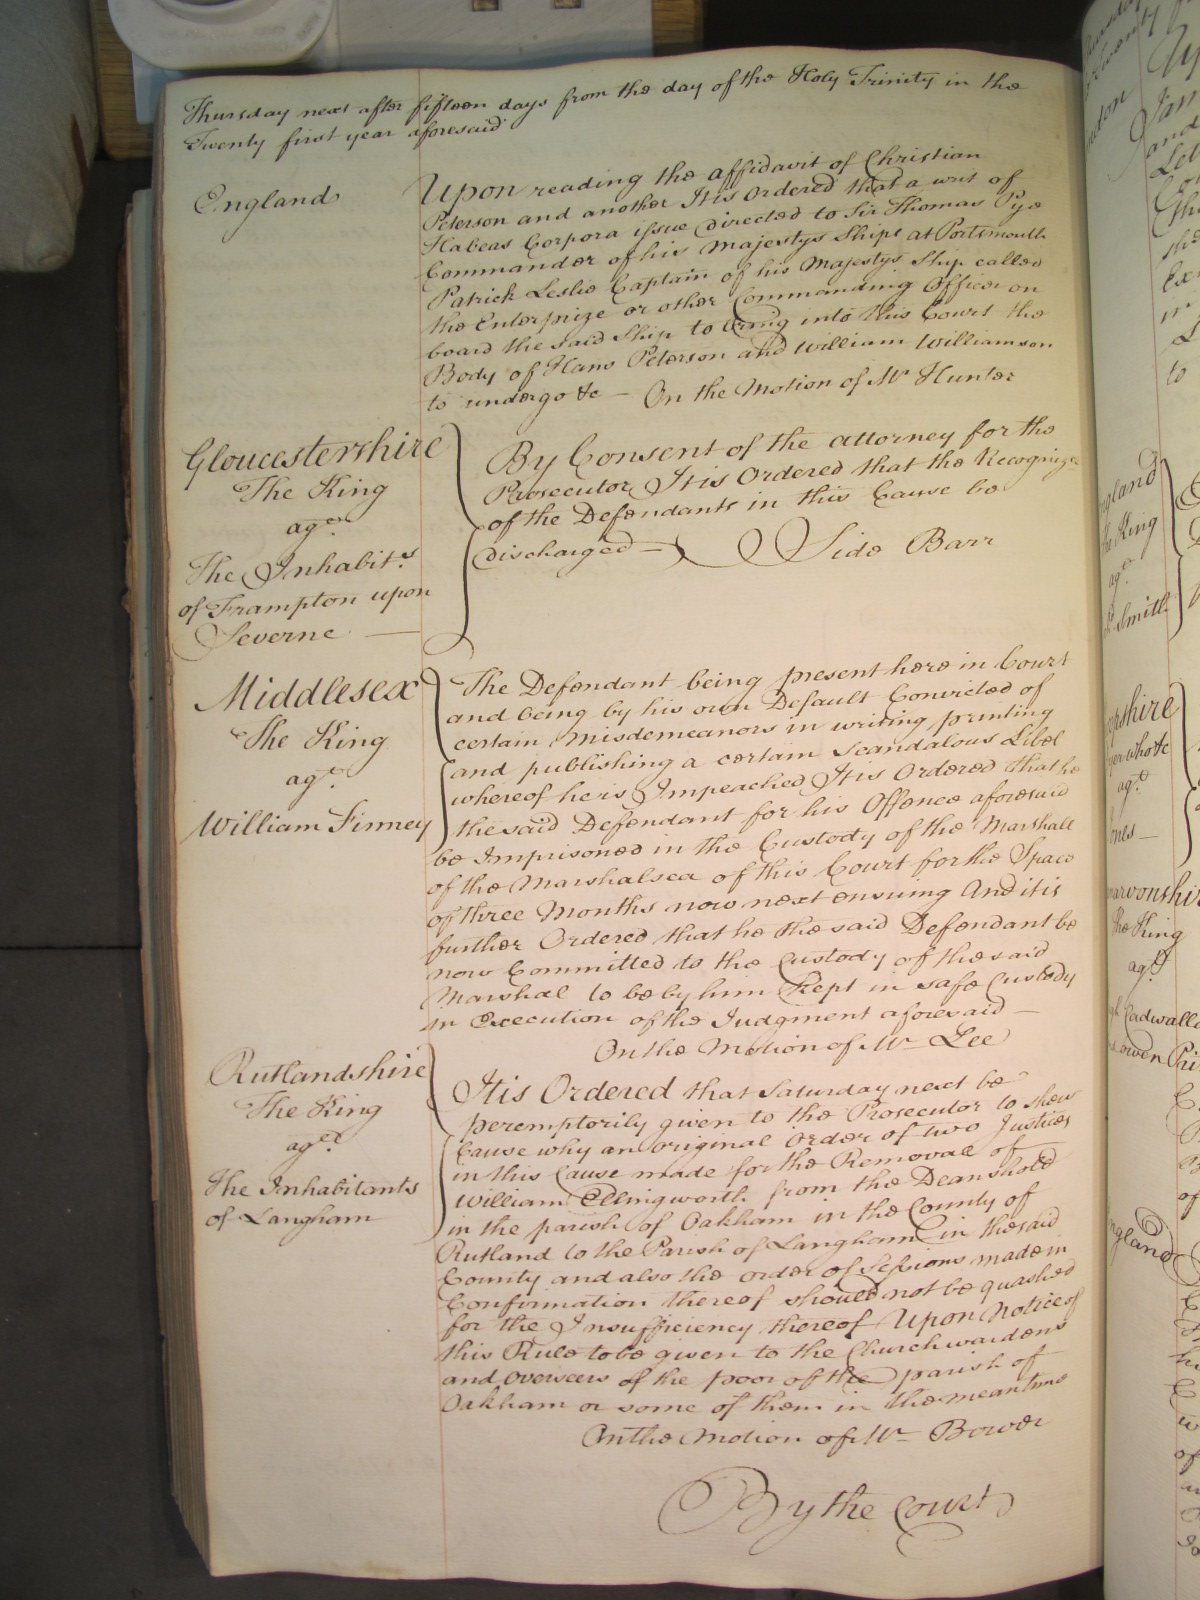 Thursday next after fifteen days from the day of the Holy Trinity in the
Twenty first year aforesaid
England
Upon reading the affidavit of Christian
Peterson and another It is Ordered that a writ of
Habeas Corpora issue directed to Sir Thomas Pye
Commander of his Majestys Ships at Portsmouth
Patrick Leslie Captain of his Majestys Ship called
the Enterprize or other Commanding Officer on
board the said Ship to bring into this Court the
Body of Hans Peterson and William Williamson
to undergo &c — On the Motion of Mr Hunter
Gloucestershire
The King
agt
The Inhabits
of Frampton upon
Severne —
By Consent of the attorney for the
Prosecutor It is Ordered that the Recognize
of the Defendants in this Cause be
discharged — Side Barr
Middlesex
The King
agt
William Finney
The Defendant being present here in Court
and being by his own Default Convicted of
certain Misdemeanors in writing printing
and publishing a certain Scandalous Libel
whereof he is Impeached It is Ordered that he
the said Defendant for his Offence aforesaid
be Imprisoned in the Custody of the Marshall
of the Marshalsea of this Court for the Space
of three Months now next ensuing And it is
further Ordered that he the said Defendant be
now Committed to the Custody of the said
Marshal to be by him Kept in safe Custody
in Execution of the Judgment aforesaid —
On the Motion of Mr Lee
Rutlandshire
The King
agt
The Inhabitants
of Langham
It is Ordered that Saturday next be
peremptorily given to the Prosecutor to shew
Cause why an original Order of two Justices
in this Cause made for the Removal of
William Ellingworth from the Deanshold
in the parish of Oakham in the County of
Rutland to the Parish of Langham in the said
County and also the order of Sessions made in
Confirmation thereof should not be quashed
for the Insufficiency thereof Upon Notice of
this Rule to be given to the Churchwardens
and overseers of the poor of the parish of
Oakham or some of them in the mean time
On the Motion of Mr Bower
By the Court